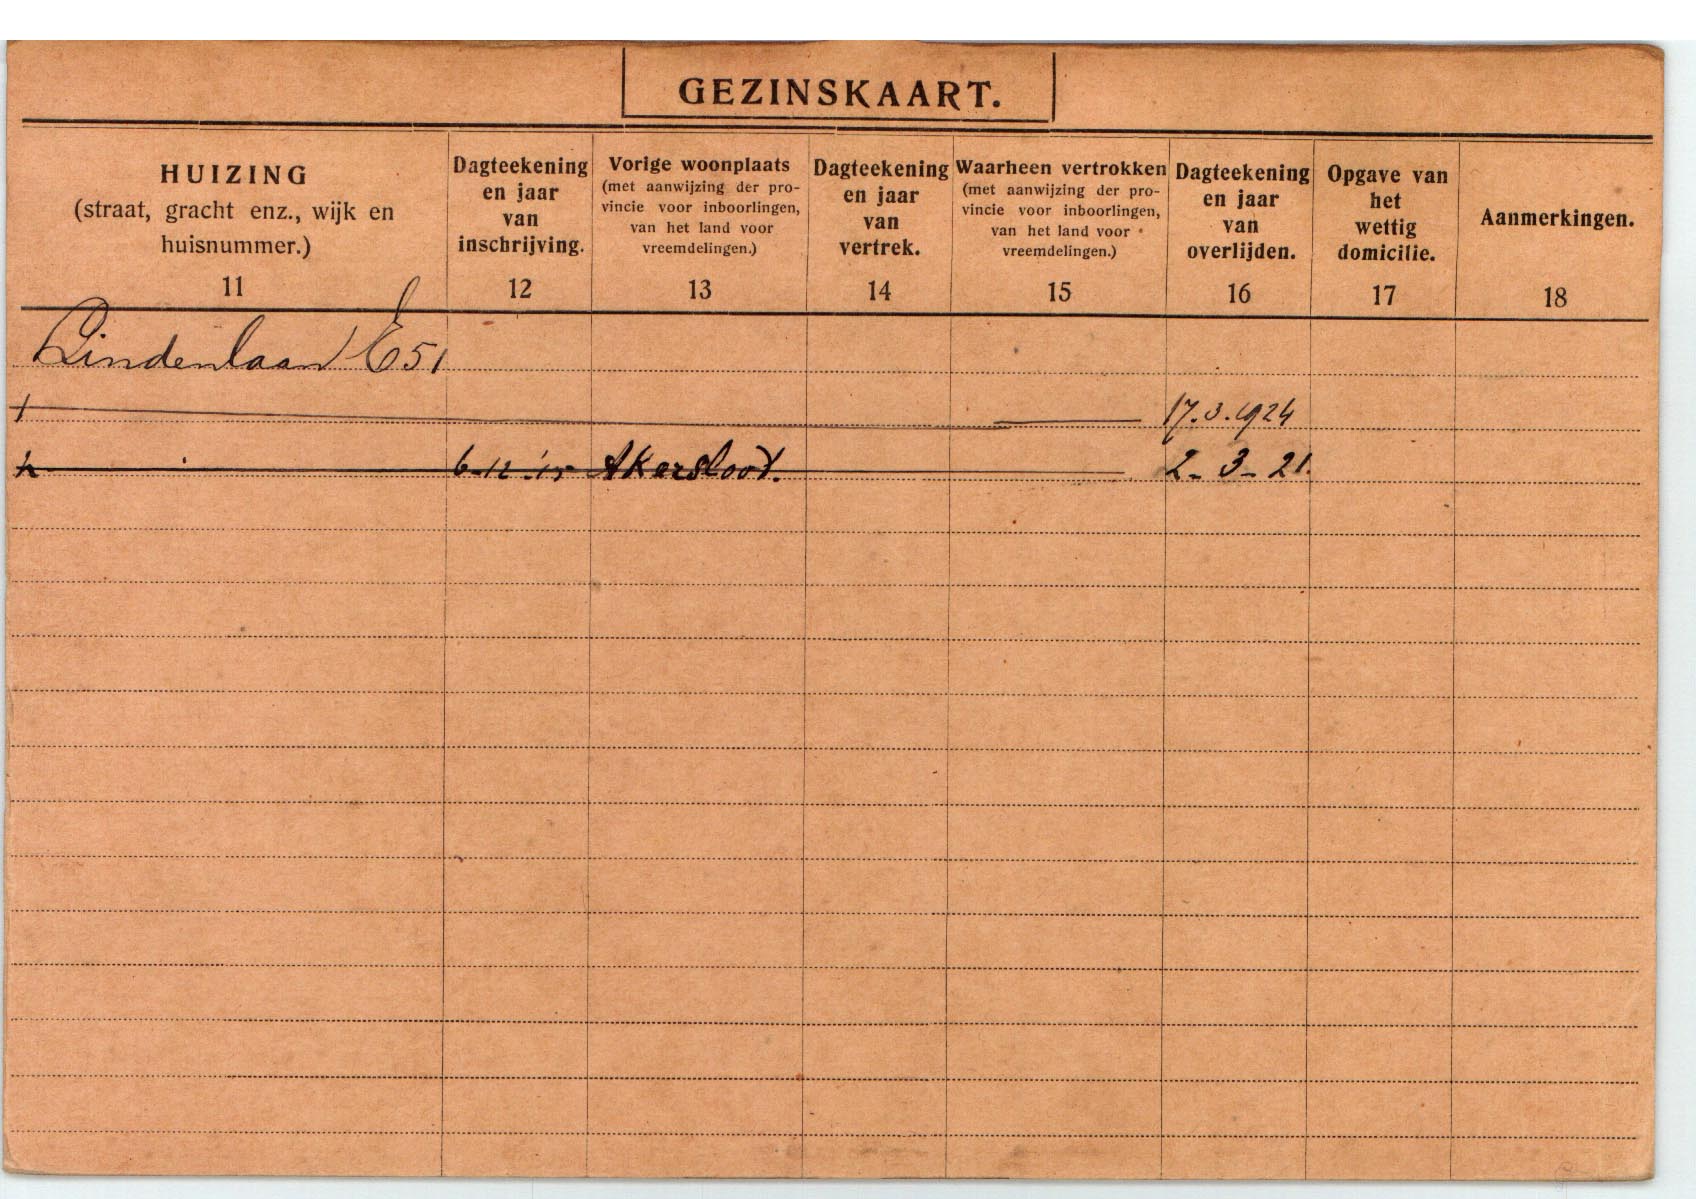 GEZINSKAART.
HUIZING
(straat, gracht enz., wijk en
huisnummer.)
11
Dagteekening
en jaar
van
inschrijving.
12
Vorige woonplaats
(met aanwijzing der pro-
vincie voor inboorlingen,
van het land voor
vreemdelingen.)
13
Dagteekening
en jaar
van
vertrek.
14
Waarheen vertrokken
(met aanwijzing der pro-
vincie voor inboorlingen,
van het land voor
vreemdelingen.)
15
Dagteekening
en jaar
van
overlijden.
16
Opgave van
het
wettig
domicilie.
17
Aanmerkingen.
18
Lindenlaan E51
1 17.3.1924
6-12-'15 Akersloot. 2-3-21.